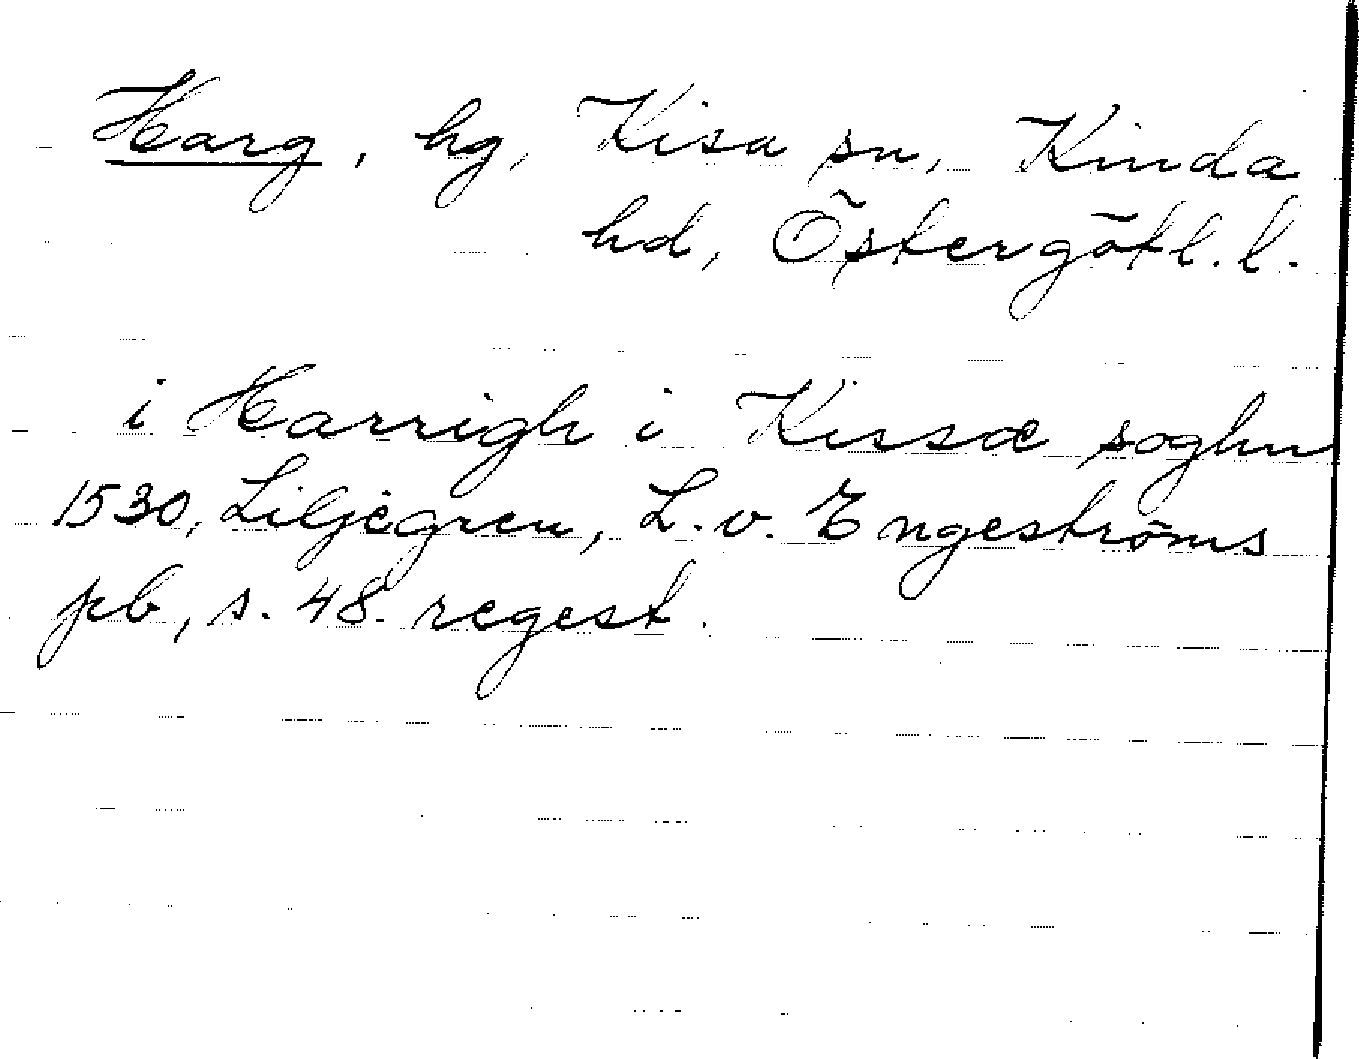 Harg, hg, Kisa sn, Kinda
hd, Östergötl. l.
i Harrigh i Kissæ soghn
1530, Liljegren, L. v. Engeströms
pb, s. 48. regest.